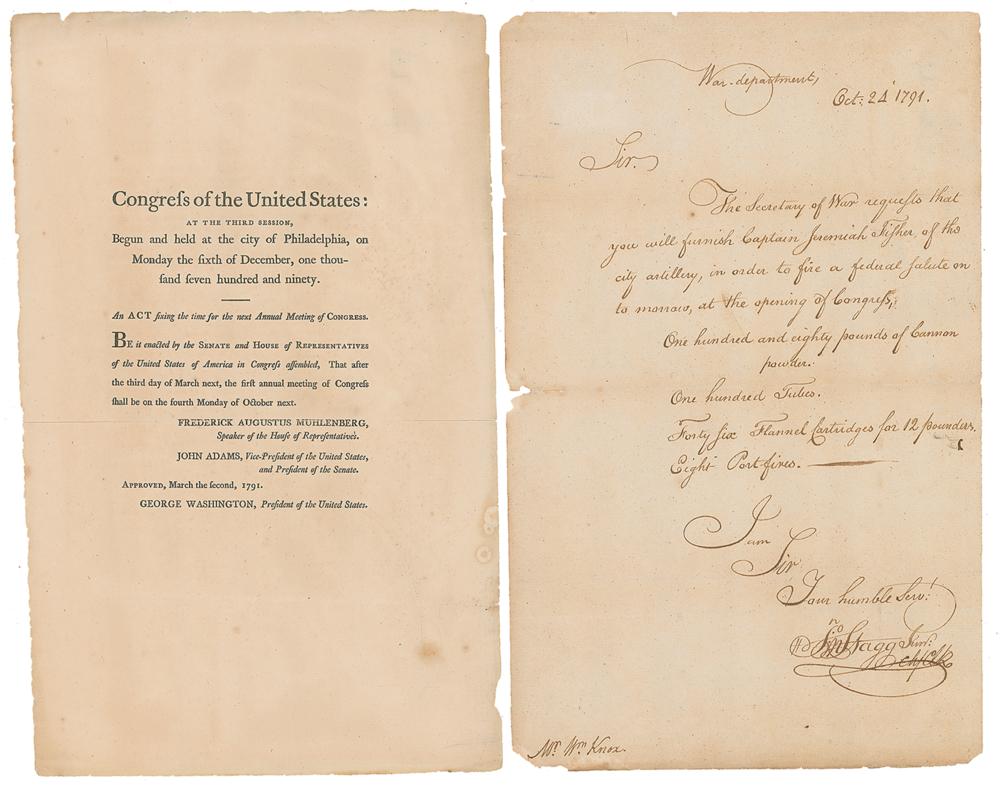 Congreſs of the United States:
AT THE THIRD SESSION,
Begun and held at the city of Philadelphia, on
Monday the ſixth of December, one thou-
ſand ſeven hundred and ninety.
An ACT fixing the time for the next Annual Meeting of CONGRESS.
BE it enacted by the SENATE and HOUSE of REPRESENTATIVES
of the United States of America in Congreſs aſſembled, That after
the third day of March next, the firſt annual meeting of Congreſs
ſhall be on the fourth Monday of October next.
FREDERICK AUGUSTUS MUHLENBERG,
Speaker of the Houſe of Repreſentatives.
JOHN ADAMS, Vice-Preſident of the United States,
and Preſident of the Senate.
APPROVED, March the ſecond, 1791.
GEORGE WASHINGTON, Preſident of the United States.
War-department,
Oct: 24 1791.
Sir.
The Secretary of War requeſts that
you will furniſh Captain Jeremiah Fiſher, of the
city artillery, in order to fire a federal ſalute on
to morrow, at the opening of Congreſs,:
One hundred and eighty pounds of Cannon
powder.
One hundred Tubes.
Forty ſix Flannel Cartridges for 12 pounders.
Eight Port-fires.
I am
Sir
Your humble Serv:
Jno Stagg Junr:
chf Clk
Mr. Wm Knox.